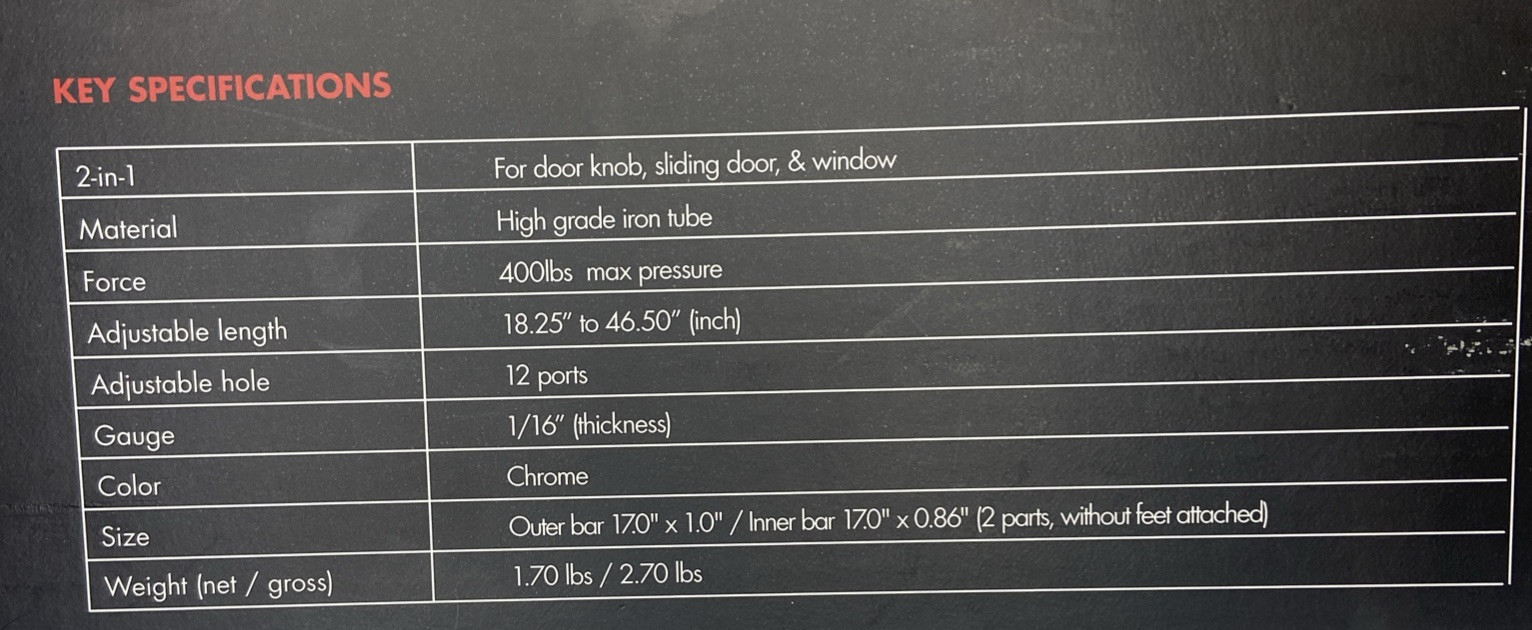 KEY SPECIFICATIONS
2-in-1 For door knob, sliding door, & window
Material High grade iron tube
Force 400lbs max pressure
Adjustable length 18.25" to 46.50" (inch)
Adjustable hole 12 ports
Gauge 1/16" (thickness)
Color Chrome
Size Outer bar 17.0" x 1.0" / Inner bar 17.0" x 0.86" (2 parts, without feet attached)
Weight (net / gross) 1.70 lbs / 2.70 lbs